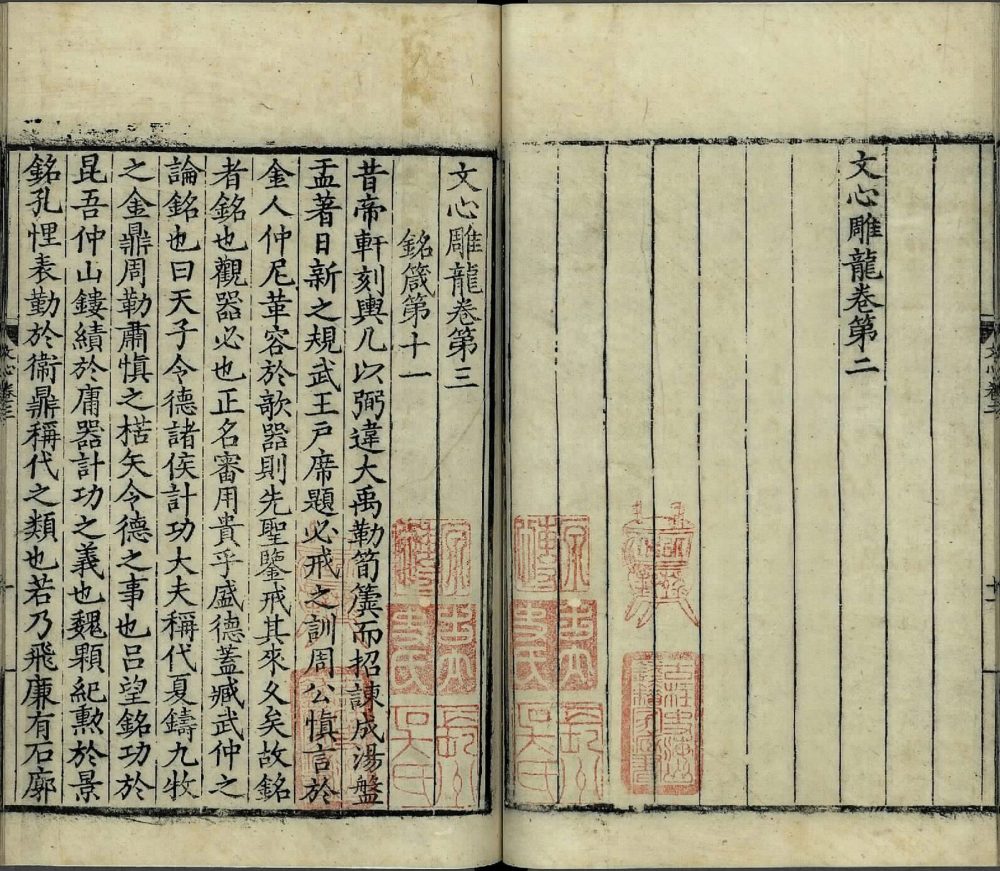 文心雕龍卷第二
文心雕龍卷第三
銘箴第十一
昔帝軒刻輿几以弼違大禹勒筍簴而招諫成湯盤
盂著日新之規武王戶席題必戒之訓周公慎言於
金人仲尼革容於欹器則先聖鑒戒其來久矣故銘
者銘也觀器必也正名審用貴乎盛德蓋臧武仲之
論銘也曰天子令德諸侯計功大夫稱代夏鑄九牧
之金鼎周勒肅慎之楛矢令德之事也呂望銘功於
昆吾仲山鏤績於庸器計功之義也魏顆紀勲於景
銘孔悝表勤於衞鼎稱代之類也若乃飛廉有石廓